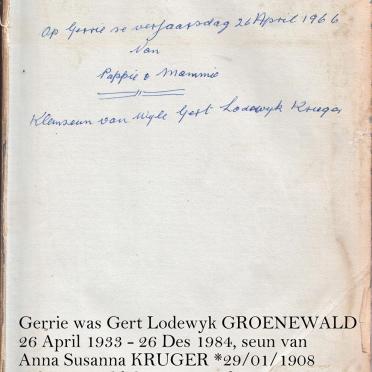 Op Gerrie se verjaarsdag 26 April 1966
Van
Pappie & Mammie
Kleinseun van Wyle Gert Lodewyk Kruger
Gerrie was Gert Lodewyk GROENEWALD
26 April 1933 - 26 Des 1984, seun van
Anna Susanna KRUGER *29/01/1908